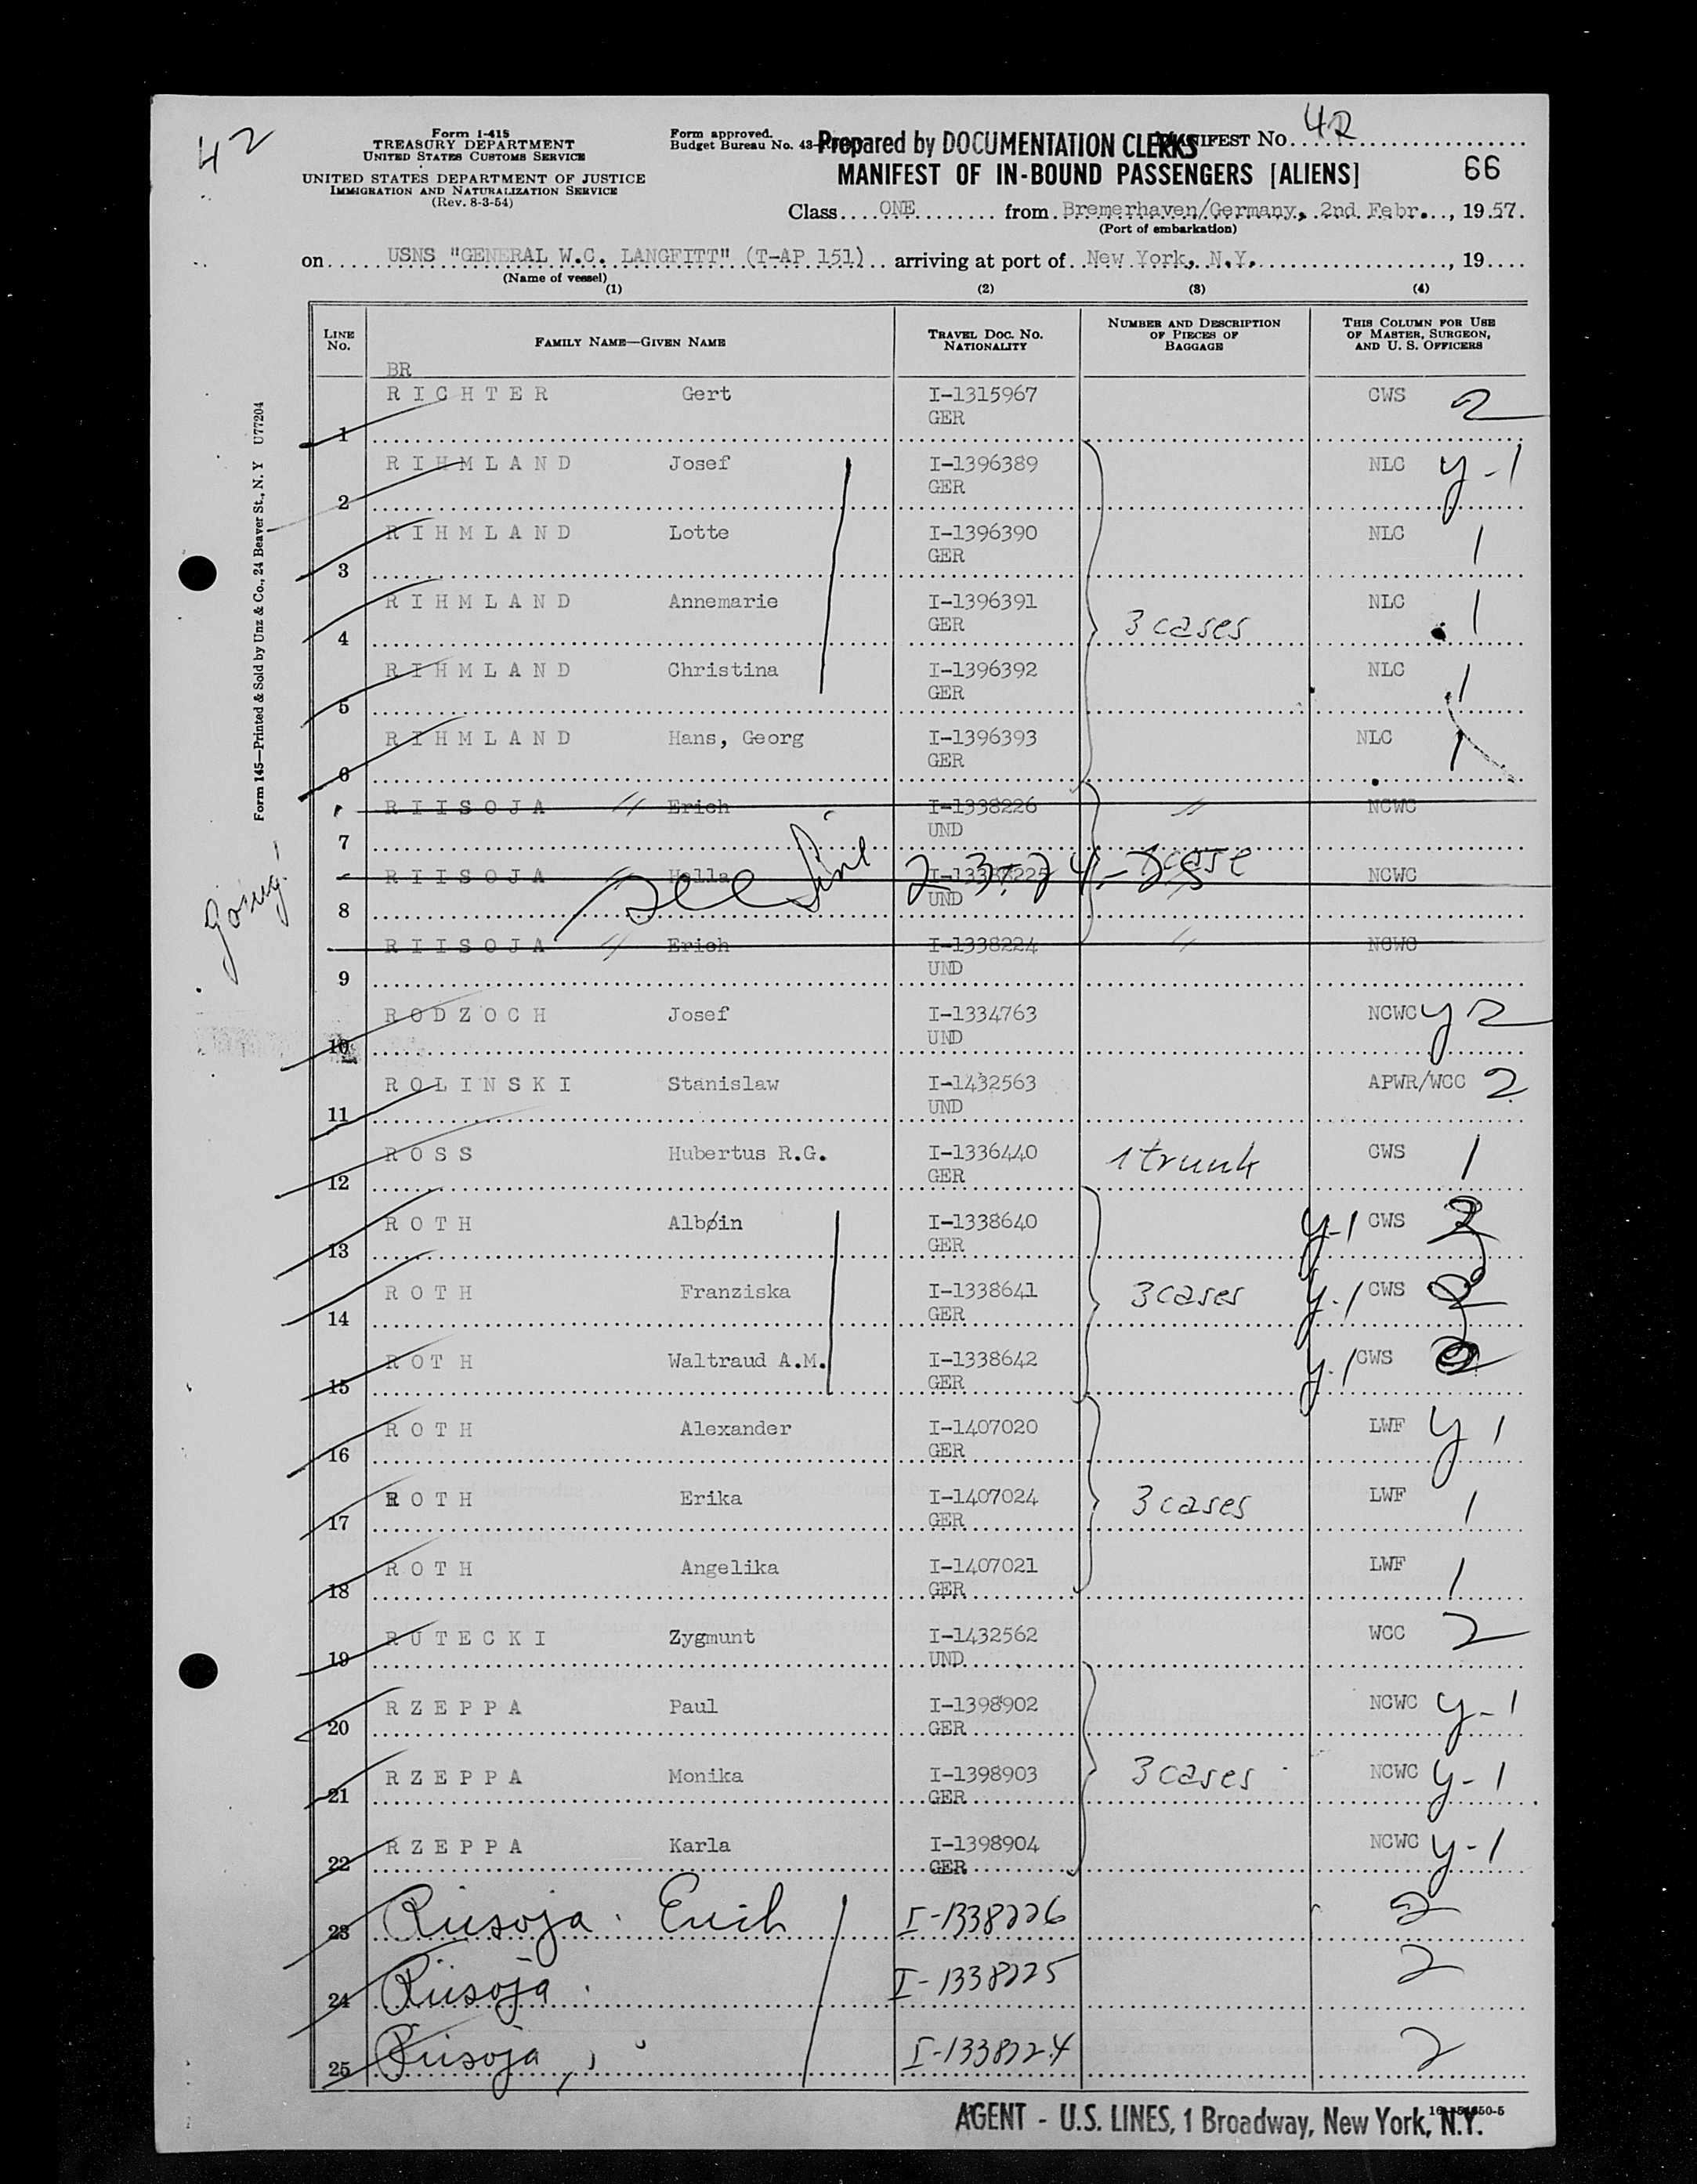 42
Form I-415
TREASURY DEPARTMENT
UNITED STATES CUSTOMS SERVICE
UNITED STATES DEPARTMENT OF JUSTICE
IMMIGRATION AND NATURALIZATION SERVICE
(Rev. 8-3-54)
Form approved.
Budget Bureau No. 43-
Prepared by DOCUMENTATION CLERKS
MANIFEST No. 42
MANIFEST OF IN-BOUND PASSENGERS [ALIENS] 66
Class ONE from Bremerhaven/Germany, 2nd Febr., 1957.
(Port of embarkation)
on USNS "GENERAL W.C. LANGFITT" (T-AP 151) arriving at port of New York, N.Y., 19
(Name of vessel)
(1) (2) (3) (4)
LINE No. FAMILY NAME—GIVEN NAME TRAVEL DOC. No. NATIONALITY NUMBER AND DESCRIPTION OF PIECES OF BAGGAGE THIS COLUMN FOR USE OF MASTER, SURGEON, AND U. S. OFFICERS
BR
1 RICHTER Gert I-1315967 GER CWS 2
2 RIHMLAND Josef I-1396389 GER NLC y-1
3 RIHMLAND Lotte I-1396390 GER NLC 1
4 RIHMLAND Annemarie I-1396391 GER 3 cases NLC 1
5 RIHMLAND Christina I-1396392 GER NLC 1
6 RIHMLAND Hans, Georg I-1396393 GER NLC 1
7 RIISOJA Erich I-1338226 UND NCWC
8 RIISOJA Hella I-1338225 UND case NCWC
see line 23-24-25
9 RIISOJA Erich I-1338224 UND NCWC
10 RODZOCH Josef I-1334763 UND NCWC y 2
11 ROLINSKI Stanislaw I-1432563 UND APWR/WCC 2
12 ROSS Hubertus R.G. I-1336440 GER 1 trunk CWS 1
13 ROTH Albøin I-1338640 GER y-1 CWS 2
14 ROTH Franziska I-1338641 GER 3 cases y-1 CWS 2
15 ROTH Waltraud A.M. I-1338642 GER y-1 CWS 2
16 ROTH Alexander I-1407020 GER LWF y 1
17 ROTH Erika I-1407024 GER 3 cases LWF 1
18 ROTH Angelika I-1407021 GER LWF 1
19 RUTECKI Zygmunt I-1432562 UND WCC 2
20 RZEPPA Paul I-1398902 GER NCWC y-1
21 RZEPPA Monika I-1398903 GER 3 cases NCWC y-1
22 RZEPPA Karla I-1398904 GER NCWC y-1
23 Riisoja Erich I-1338226 2
24 Riisoja I-1338225 2
25 Riisoja I-1338224 2
Form 145—Printed & Sold by Unz & Co., 24 Beaver St., N. Y U77204
going!
AGENT - U.S. LINES, 1 Broadway, New York, N.Y.